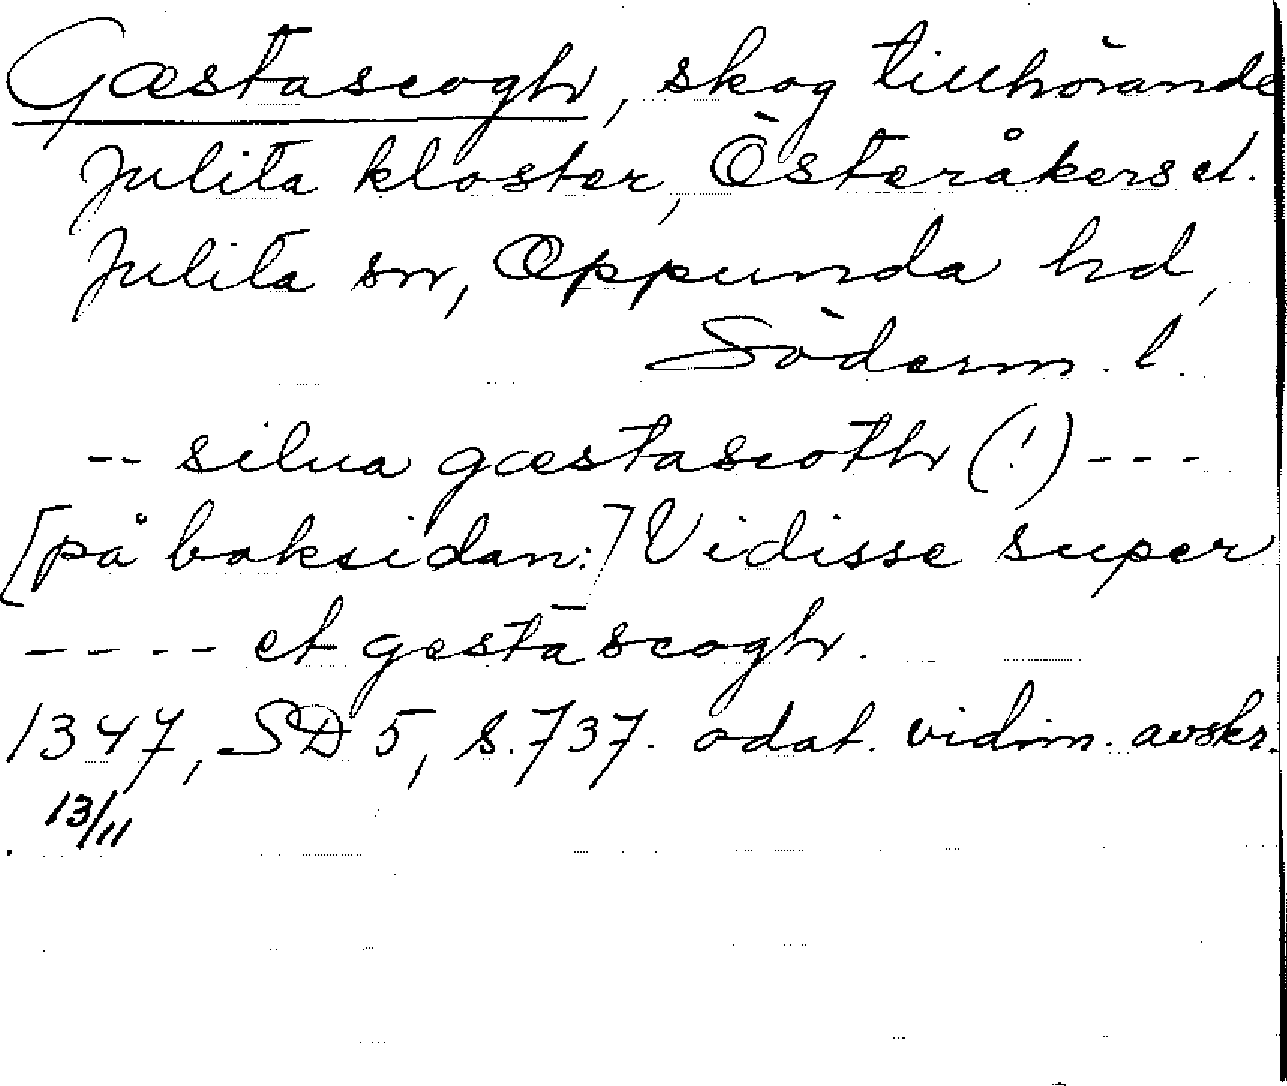 Gæstascoghr, skog tillhörande
Julita kloster, Österåkers et.
Julita sn, Oppunda hd,
Söderm. l.
-- silua gæstascothr (!) ---
[på baksidan:] Vidisse super
---- et gestascoghr.
1347, SD 5, s. 737. odat. vidim. avskr.
13/11